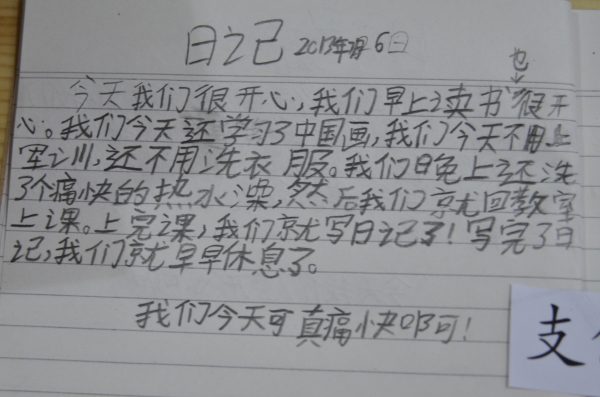 日记 2013年7月6日
也
今天我们很开心,我们早上读书很开
心。我们今天还学习了中国画,我们今天不用上
军训,还不用洗衣服。我们晚上还洗
了个痛快的热水澡,然后我们就回教室
上课。上完课,我们就写日记了!写完了日
记,我们就早早休息了。
我们今天可真痛快啊!
支